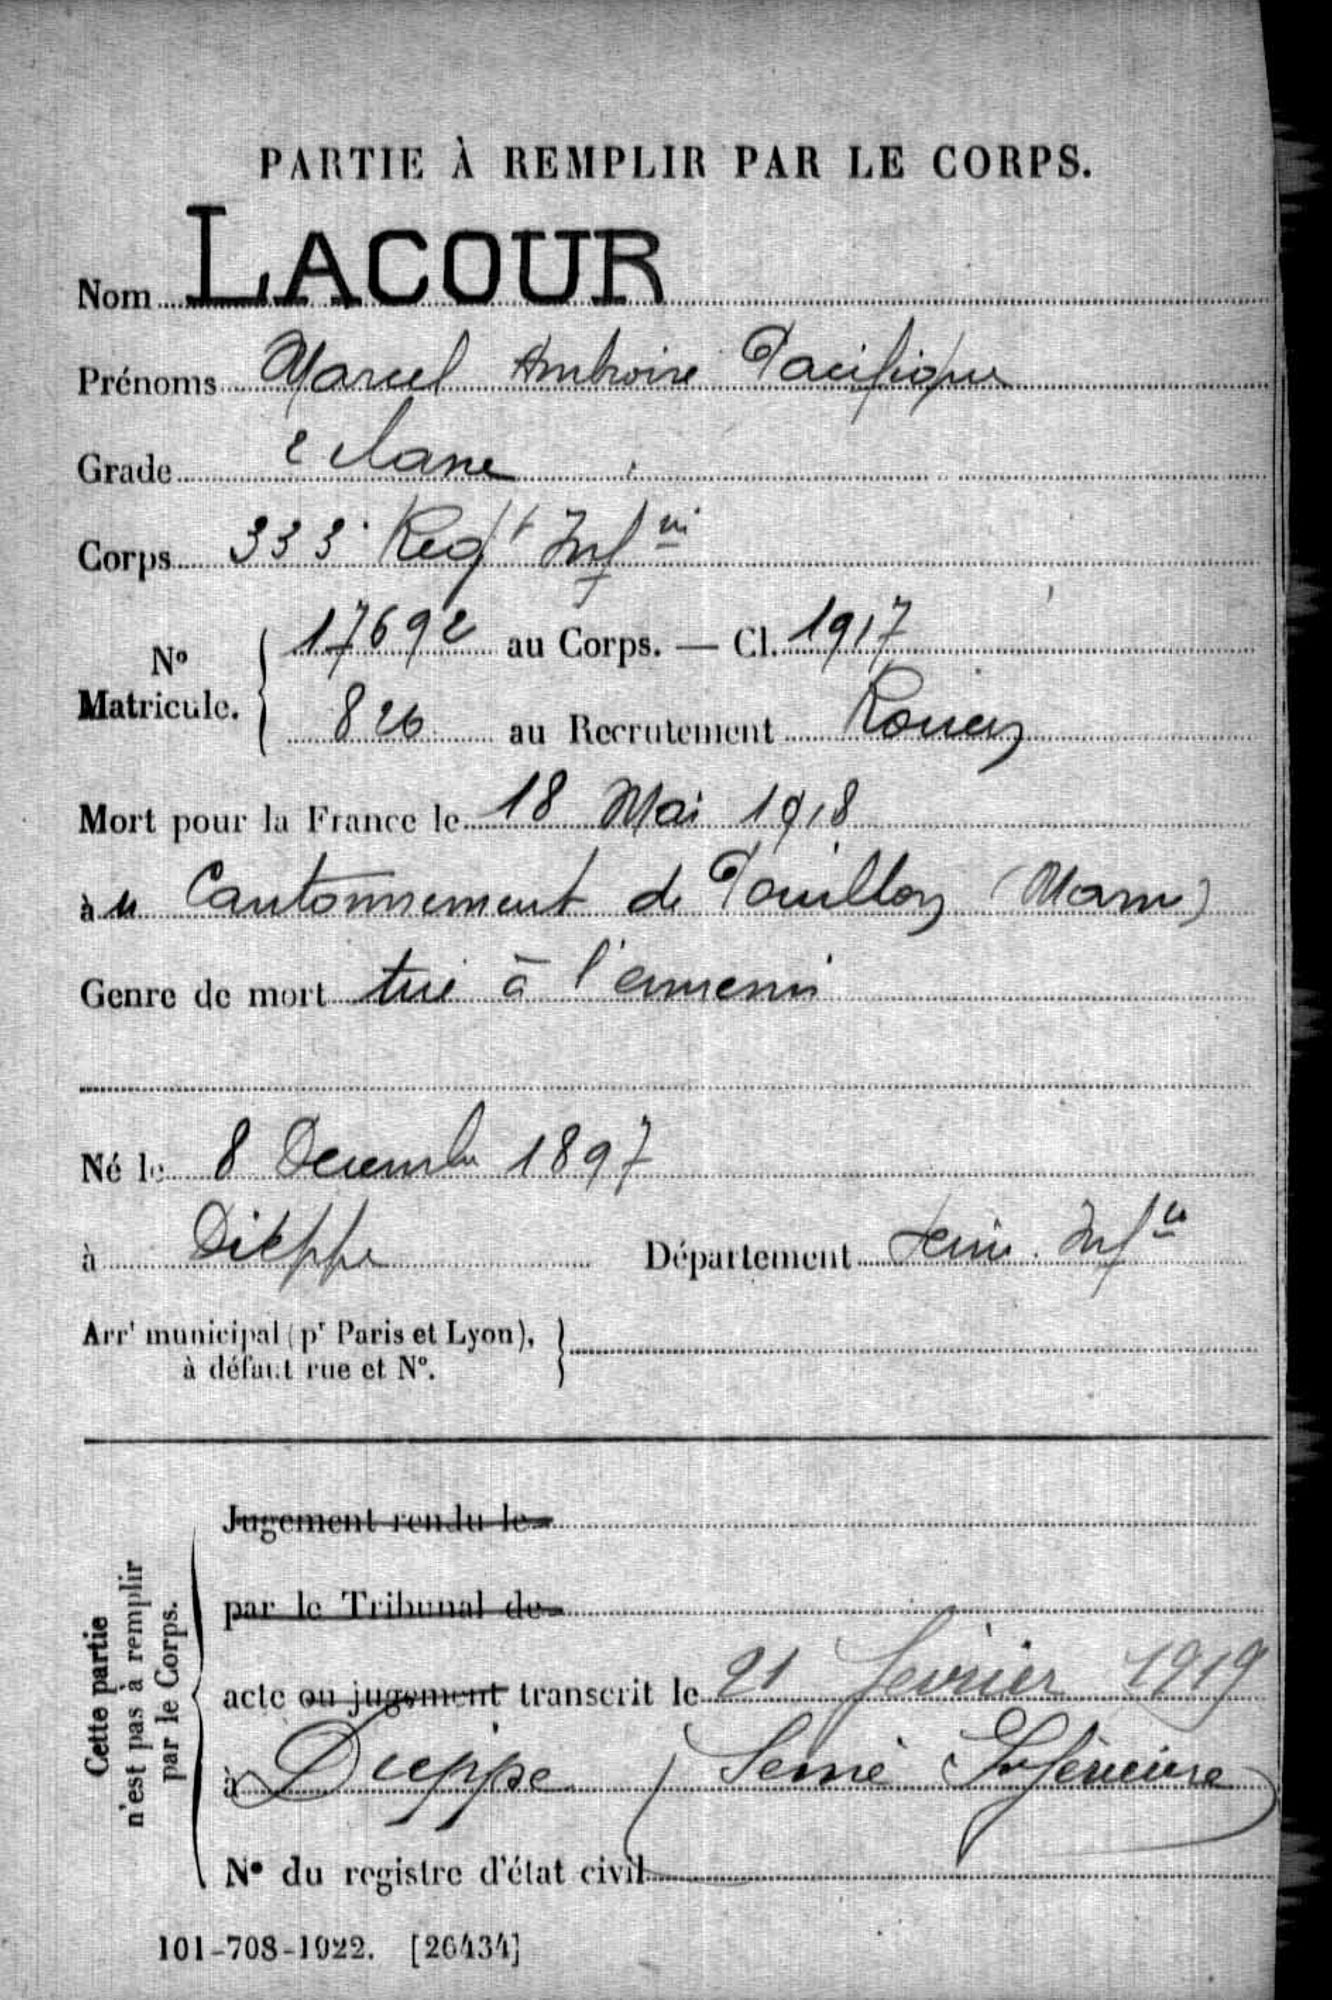 PARTIE À REMPLIR PAR LE CORPS.
Nom LACOUR
Prénoms Marcel Ambroise Pacifique
Grade 2 classe
Corps 333e Regt Infie
17692 au Corps. — Cl. 1917
No Matricule.
826 au Recrutement Rouen
Mort pour la France le 18 Mai 1918
à u Cantonnement de Pouillon (Marne)
Genre de mort tué à l'ennemi
Né le 8 Decembre 1897
à Dieppe Département Seine Infre
Arrt municipal (pr Paris et Lyon),
à défaut rue et No.
Cette partie
n'est pas à remplir
par le Corps.
Jugement rendu le
par le Tribunal de
acte ou jugement transcrit le 21 février 1919
à Dieppe (Seine Inférieure)
No du registre d'état civil
101-708-1922. [26434]